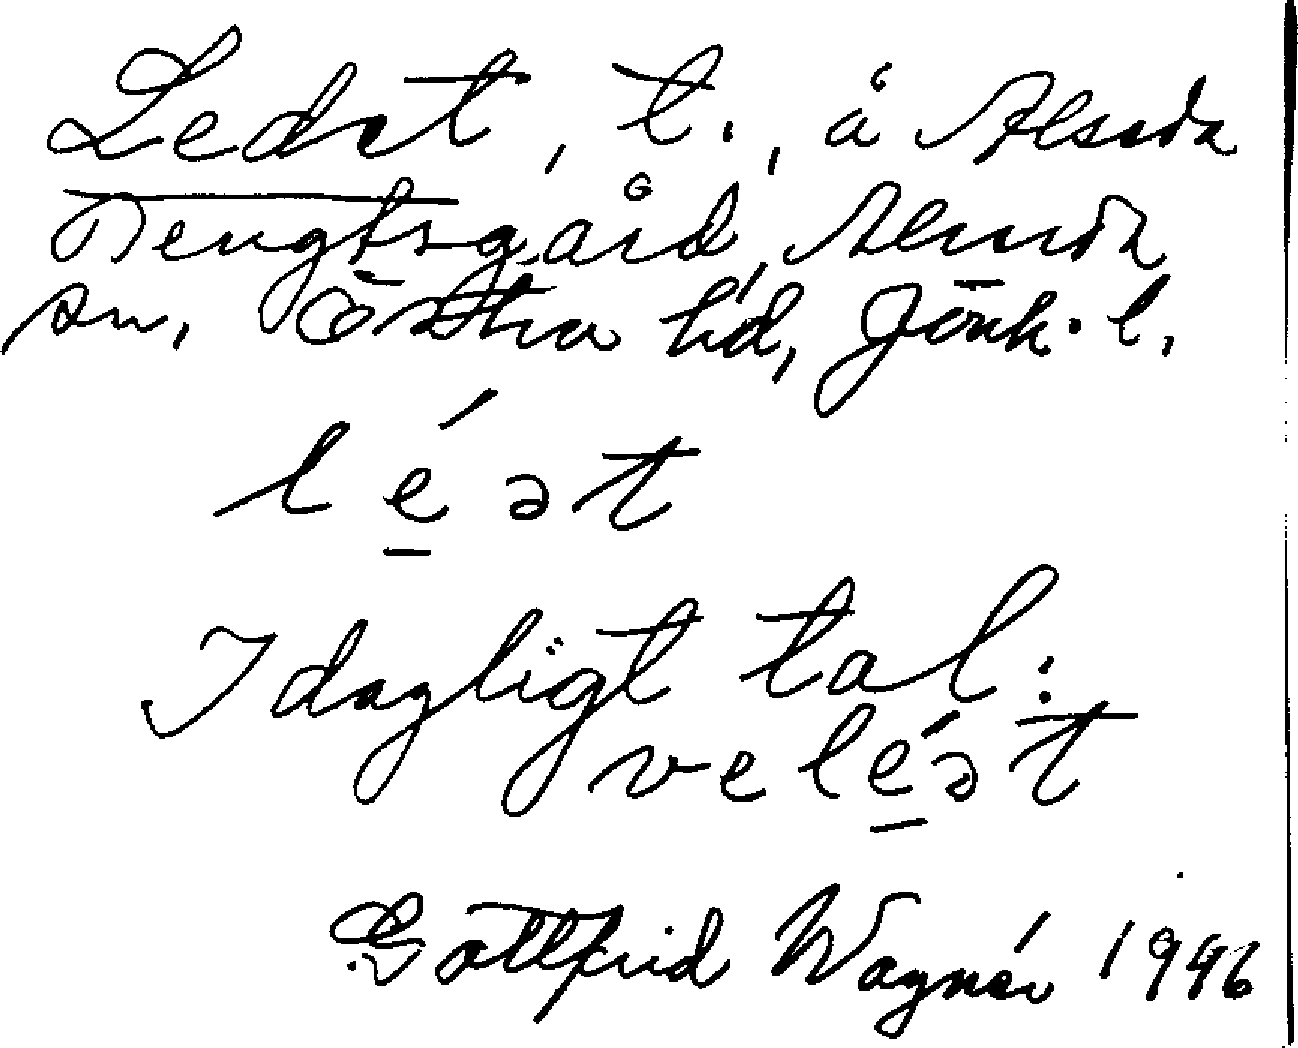 Ledet, t., å Alseda
Bengtsgård, Alseda
sn, Östra hd, Jönk. l.
léət
I dagligt tal:
ve léət
Gottfrid Wagnér 1946